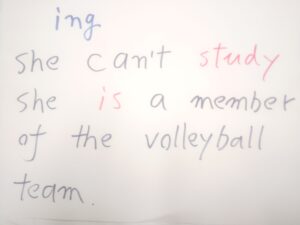 ing
she can't study
she is a member
of the volleyball
team.